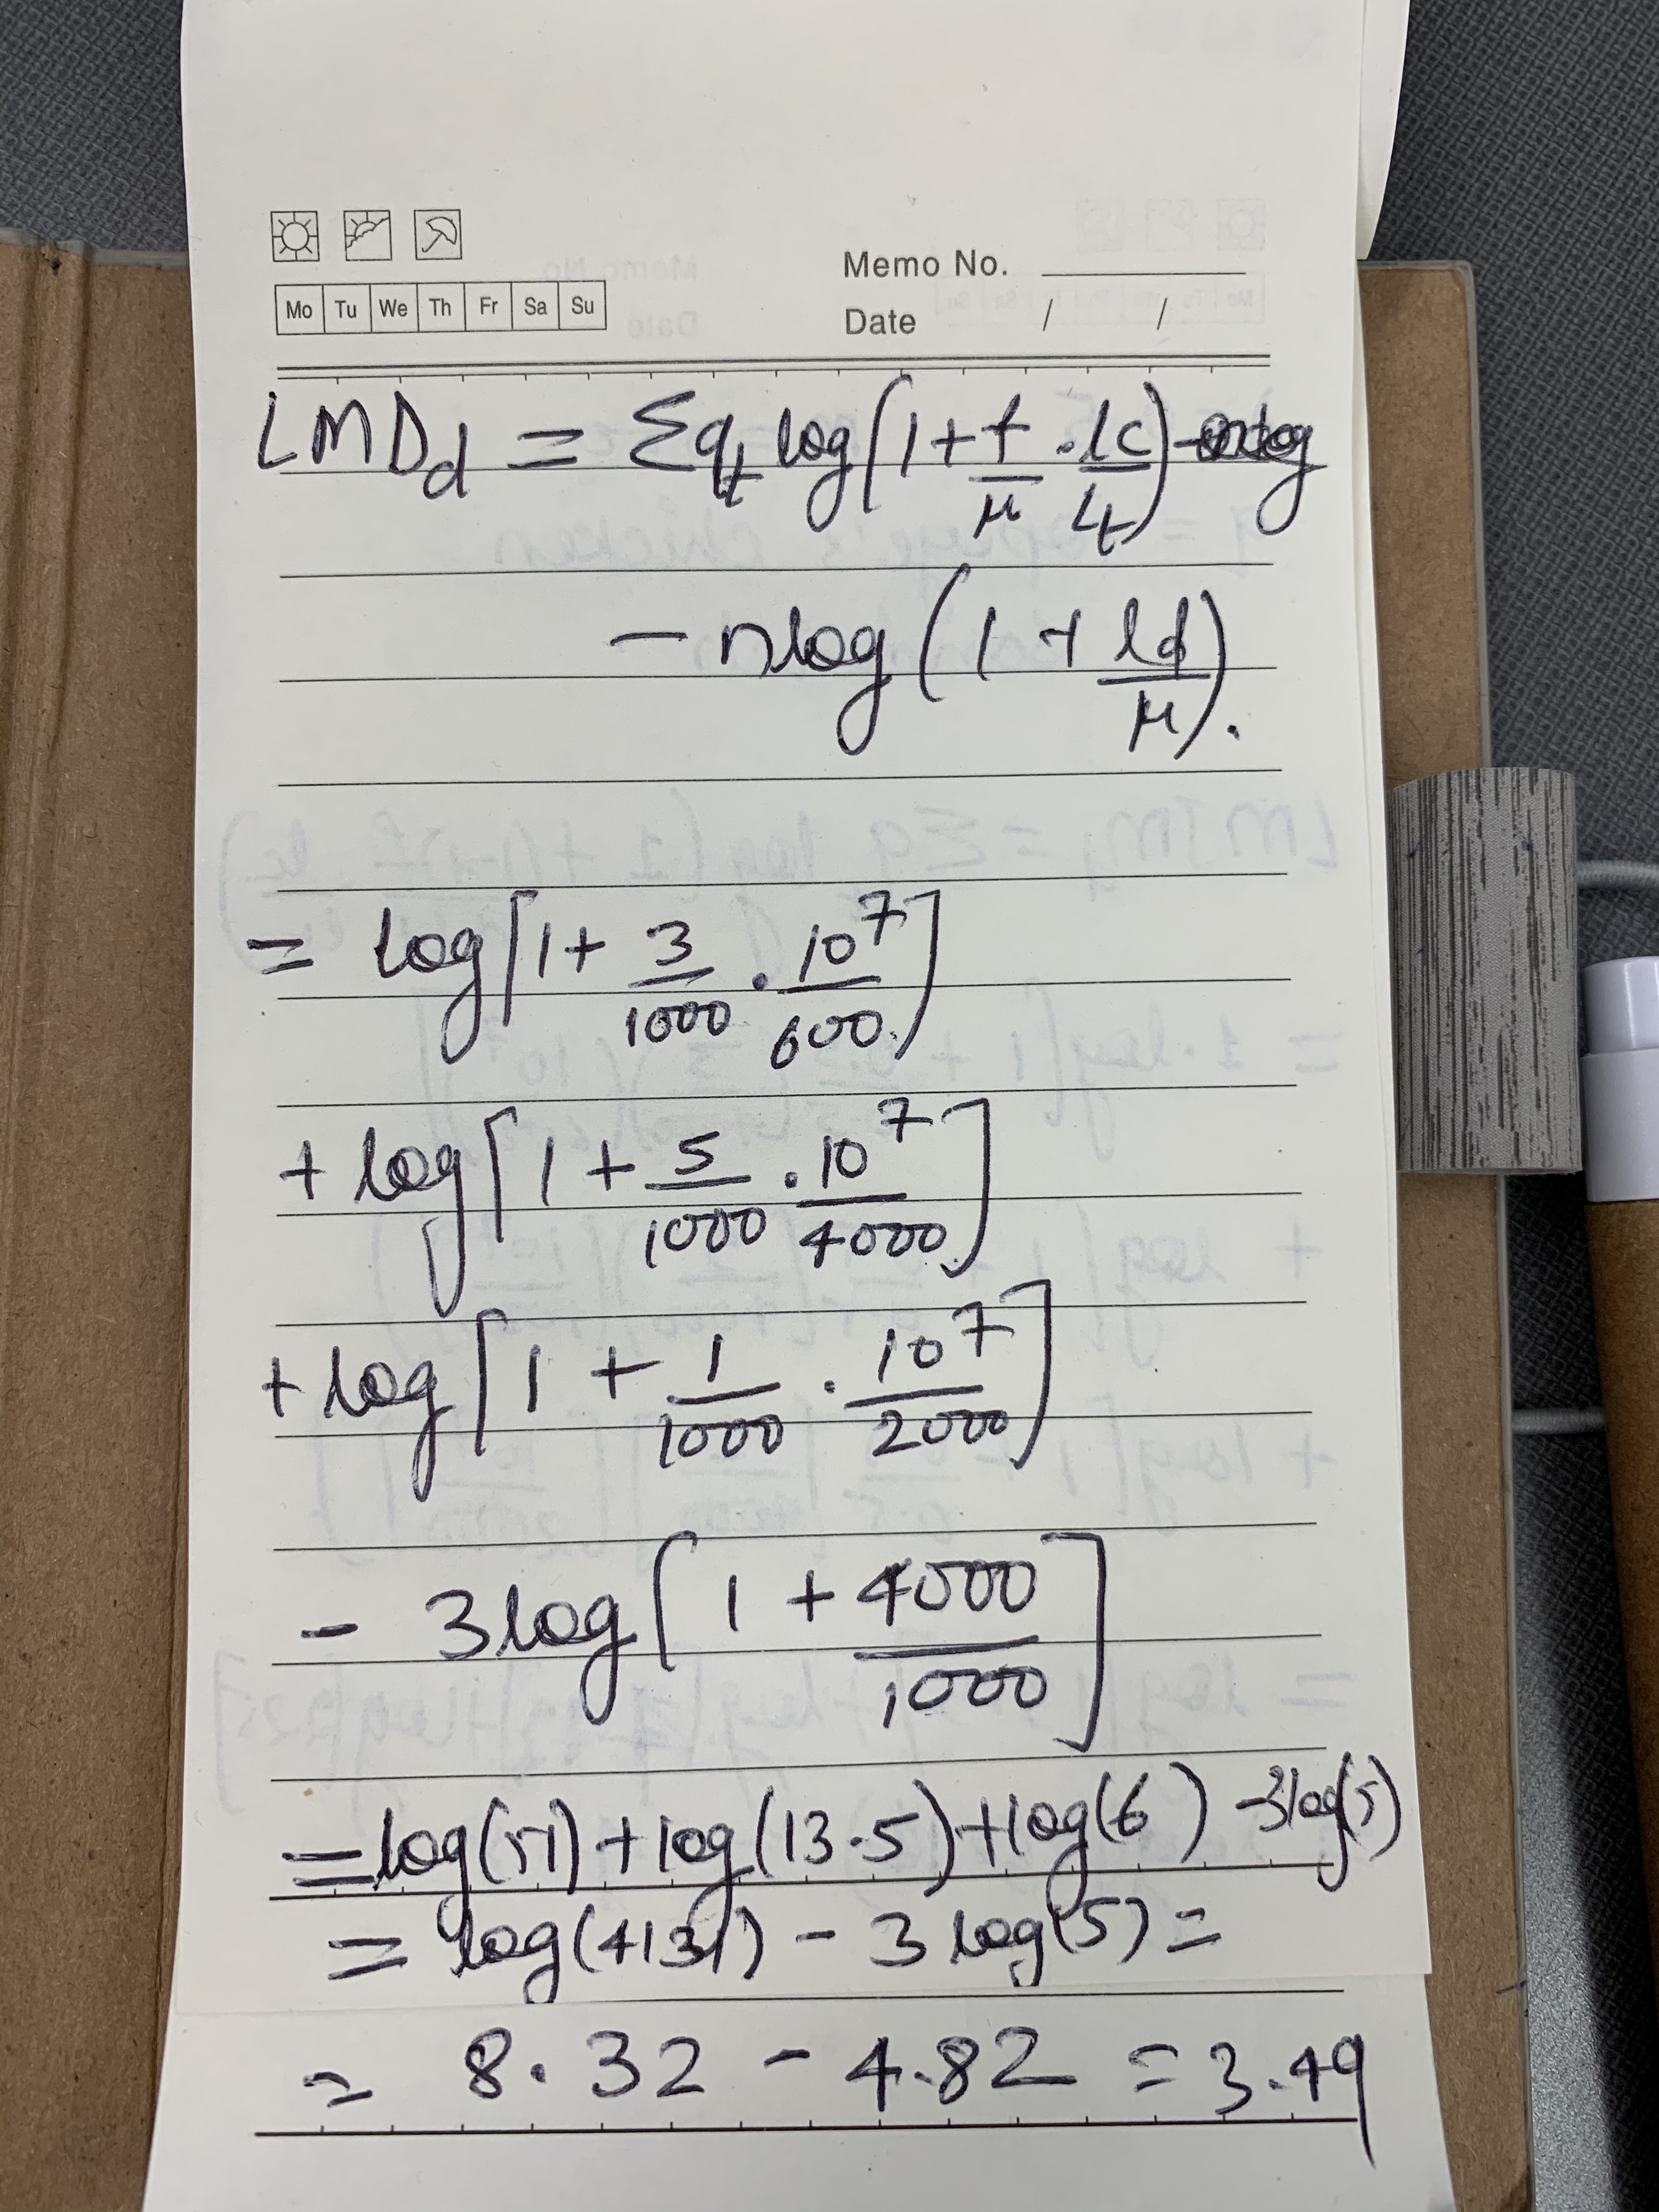 Memo No.
Mo Tu We Th Fr Sa Su
Date / /
LMDd = Σqt log(1 + f/μ · lc/lt)
- nlog(1 + ld/μ).
= log[1 + 3/1000 · 10^7/600]
+ log[1 + 5/1000 · 10^7/4000]
+ log[1 + 1/1000 · 10^7/2000]
- 3log[1 + 4000/1000]
= log(51) + log(13.5) + log(6) - 3log(5)
= log(4131) - 3 log(5) =
= 8.32 - 4.82 = 3.49